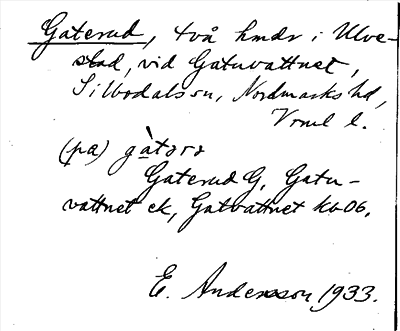 Gaterud, två hmdr i Ulve-
stad, vid Gatuvattnet,
Silbodals sn, Nordmarks hd,
Vrml l.
(på) gàtərə
Gaterud G, Gatu-
vattnet ek, Gatvattnet kb 06.
E. Andersson, 1933.